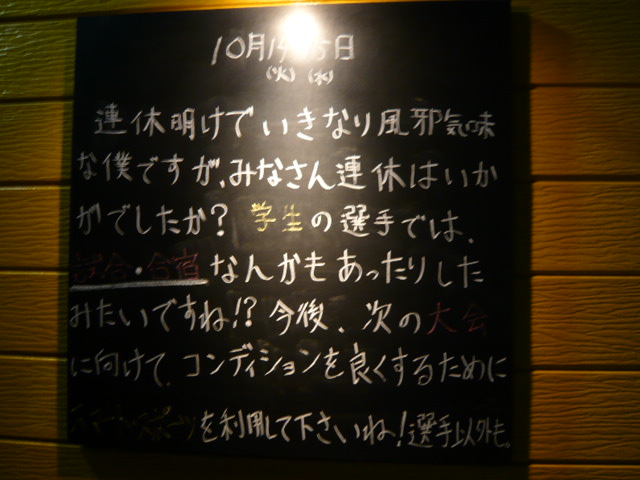 10月14 15日
(火)(水)
連休明けでいきなり風邪気味
な僕ですが、みなさん連休はいか
がでしたか？学生の選手では、
試合・合宿なんかもあったりした
みたいですね!?今後、次の大会
に向けて、コンディションを良くするために
を利用して下さいね！選手以外も。